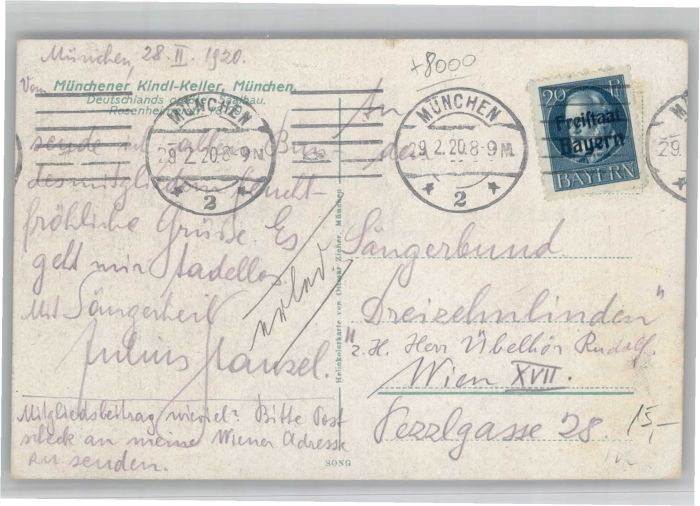 München, 28. II. 1920.
+8000
Vom Münchener Kindl-Keller, München.
Deutschlands größter Saalbau.
Rosenheimerstr.
sende ich allen Bun-
desmitgliedern feucht-
fröhliche Grüße. Es
geht mir tadellos
Mit Sängerheil
Julius
erled.
Mitgliedsbeitrag wieviel? Bitte Post
scheck an meine Wiener Adresse
zu senden.
MÜNCHEN
29.2.20.8-9 N.
2
MÜNCHEN
29.2.20.8-9 N.
2
29.
20
Freistaat
Bayern
BAYERN
An
den
Sängerbund
"Dreizehnlinden"
z. H. Herr Übelhör Rudolf.
Wien XVII.
Pezzlgasse 28.
15,-
Heliokolorkarte von Ottmar Zieher, München